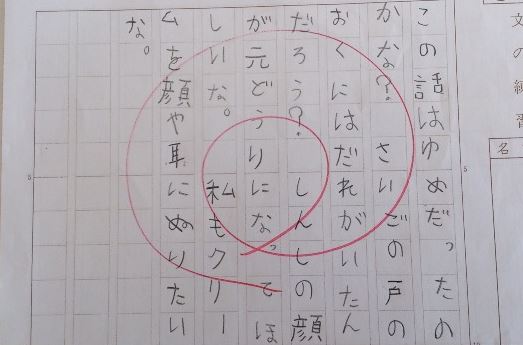 文の練習
名
この話はゆめだったの
かな?さいごの戸の
おくにはだれがいたん
だろう?しんしの顔
が元どうりになってほ
しいな。私もクリー
ムを顔や耳にぬりたい
な。
5
5
10